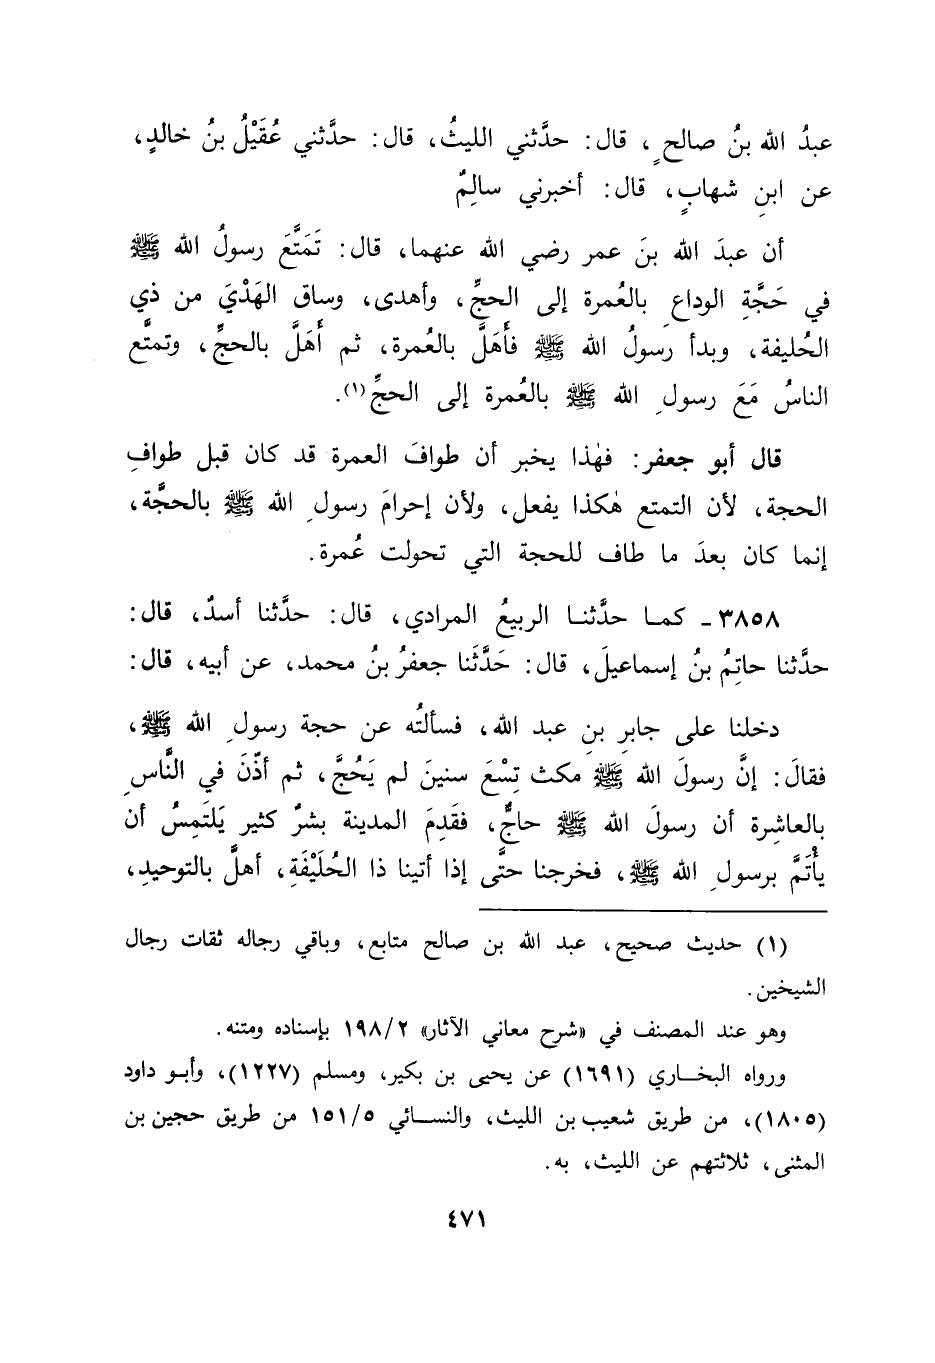 عبدُ الله بنُ صالحٍ، قال: حدَّثني الليثُ، قال: حدَّثني عُقَيْلُ بنُ خالدٍ،
عن ابنِ شهابٍ، قال: أخبرني سالِمٌ
أن عبدَ الله بنَ عمر رضي الله عنهما، قال: تَمَتَّعَ رسولُ الله ﷺ
في حَجَّةِ الوداعِ بالعُمرة إلى الحجِّ، وأهدى، وساق الهَدْيَ من ذي
الحُليفة، وبدأ رسولُ الله ﷺ فأَهَلَّ بالعُمرة، ثم أَهَلَّ بالحجِّ، وتمتَّع
الناسُ مَعَ رسولِ الله ﷺ بالعُمرة إلى الحجِّ(١).
قال أبو جعفر: فهٰذا يخبر أن طوافَ العمرة قد كان قبل طوافِ
الحجة، لأن التمتع هٰكذا يفعل، ولأن إحرامَ رسولِ الله ﷺ بالحجَّة،
إنما كان بعدَ ما طاف للحجة التي تحولت عُمرة.
٣٨٥٨ـ كما حدَّثنا الربيعُ المرادي، قال: حدَّثنا أسدٌ، قال:
حدَّثنا حاتِمُ بنُ إسماعيلَ، قال: حَدَّثَنا جعفرُ بنُ محمد، عن أبيه، قال:
دخلنا على جابرِ بنِ عبد الله، فسألتُه عن حجة رسولِ الله ﷺ،
فقالَ: إنَّ رسولَ الله ﷺ مكث تِسْعَ سنينَ لم يَحُجَّ، ثم أذّنَ في النَّاسِ
بالعاشِرة أن رسولَ الله ﷺ حاجٌّ، فقَدِمَ المدينة بشرٌ كثير يَلتَمِسُ أن
يأْتَمَّ برسولِ الله ﷺ، فخرجنا حتَّى إذا أتينا ذا الحُلَيْفَةِ، أهلَّ بالتوحيدِ،
(١) حديث صحيح، عبد الله بن صالح متابع، وباقي رجاله ثقات رجال
الشيخين.
وهو عند المصنف في «شرح معاني الآثار» ١٩٨/٢ بإسناده ومتنه.
ورواه البخاري (١٦٩١) عن يحيى بن بكير، ومسلم (١٢٢٧)، وأبو داود
(١٨٠٥)، من طريق شعيب بن الليث، والنسائي ١٥١/٥ من طريق حجين بن
المثنى، ثلاثتهم عن الليث، به.
٤٧١